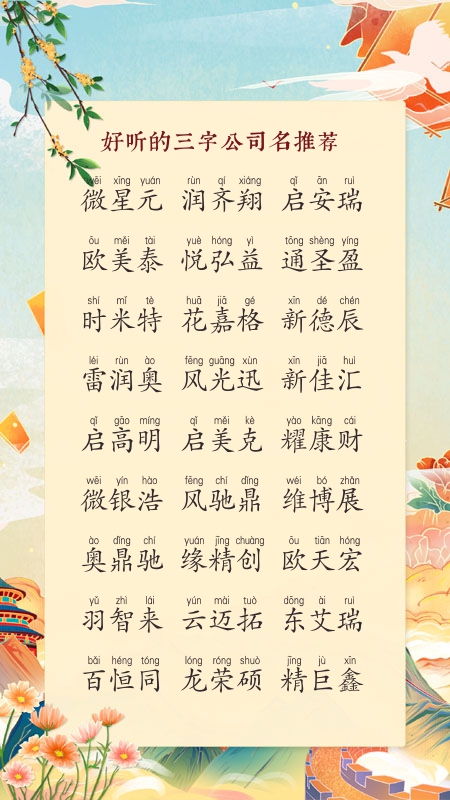 好听的三字公司名推荐
wēi xīng yuán rùn qí xiáng qǐ ān ruì
微星元 润齐翔 启安瑞
ōu měi tài yuè hóng yì tōng shèng yíng
欧美泰 悦弘益 通圣盈
shí mǐ tè huā jiā gé xīn dé chén
时米特 花嘉格 新德辰
léi rùn ào fēng guāng xùn xīn jiā huì
雷润奥 风光迅 新佳汇
qǐ gāo míng qǐ měi kè yào kāng cái
启高明 启美克 耀康财
wēi yín hào fēng chí dǐng wéi bó zhǎn
微银浩 风驰鼎 维博展
ào dǐng chí yuán jīng chuàng ōu tiān hóng
奥鼎驰 缘精创 欧天宏
yǔ zhì lái yún mài tuò dōng ài ruì
羽智来 云迈拓 东艾瑞
bǎi héng tóng lóng róng shuò jīng jù xīn
百恒同 龙荣硕 精巨鑫